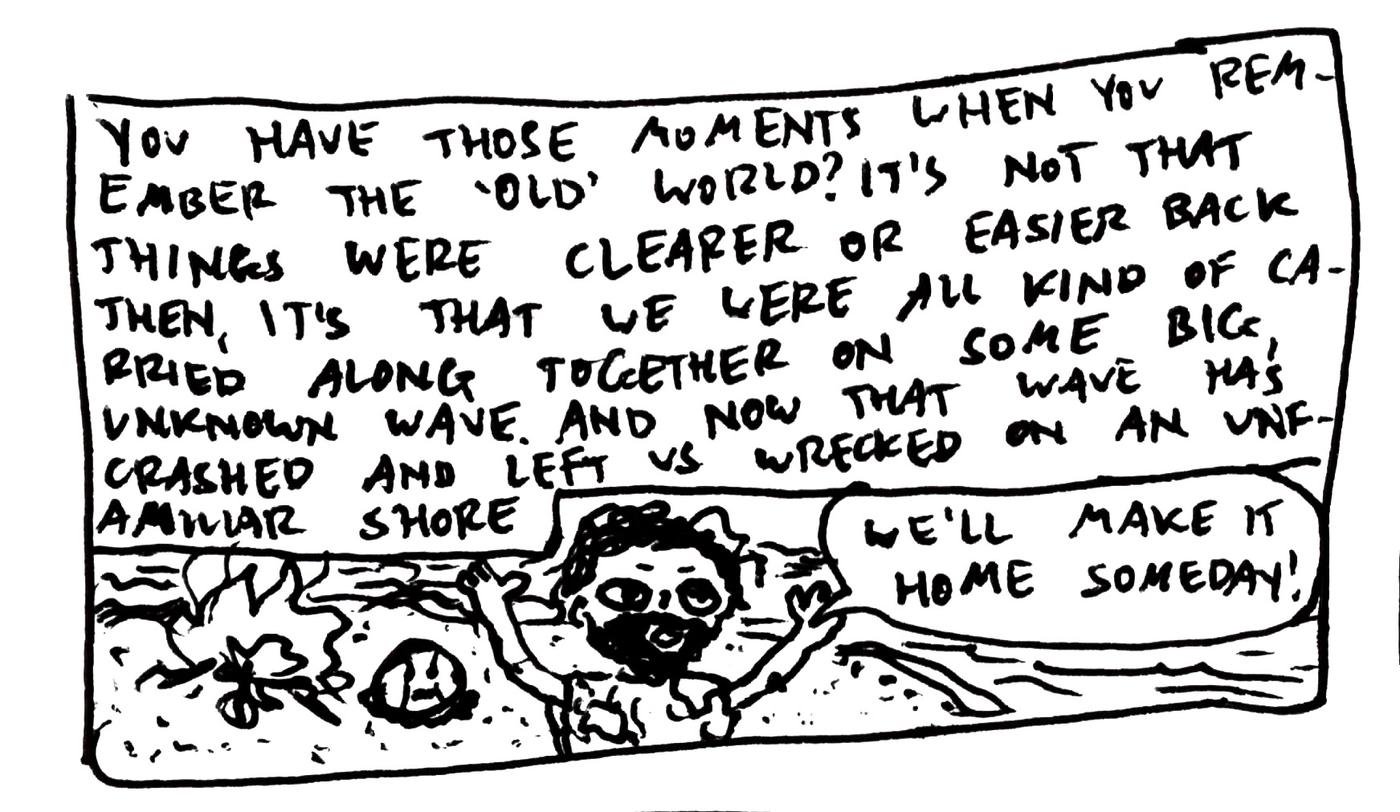 YOU HAVE THOSE MOMENTS WHEN YOU REM-
EMBER THE 'OLD' WORLD? IT'S NOT THAT
THINGS WERE CLEARER OR EASIER BACK
THEN, IT'S THAT WE WERE ALL KIND OF CA-
RRIED ALONG TOGETHER ON SOME BIG,
UNKNOWN WAVE. AND NOW THAT WAVE HAS
CRASHED AND LEFT US WRECKED ON AN UNF-
AMILIAR SHORE
WE'LL MAKE IT
HOME SOMEDAY!